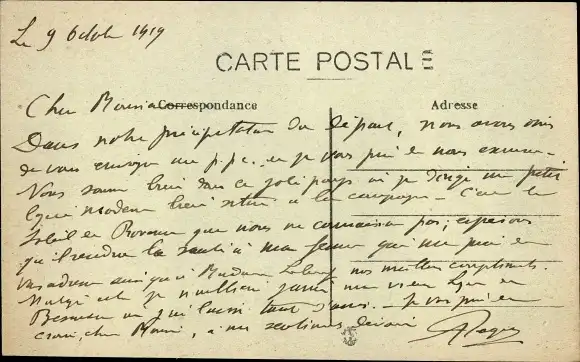 Le 9 Octobre 1919
CARTE POSTALE
Correspondance
Adresse
Cher Monsieur
Dans notre précipitation du départ, nous avons omis
de vous envoyer un p.p.c. et je vous prie de nous excuser.
Nous sommes bien dans ce joli pays où je dirige un petit
lycée moderne bien situé à la campagne - C'est le
soleil de Provence que nous ne connaissions pas, espérons
qu'il rendra la santé à ma femme qui me prie de
vous adresser ainsi qu'à Madame nos meilleurs compliments.
Malgré cela je n'oublierai jamais mon vieux Lycée de
où j'ai laissé tant d'amis. - Je vous prie de
croire, cher Monsieur, à mes sentiments